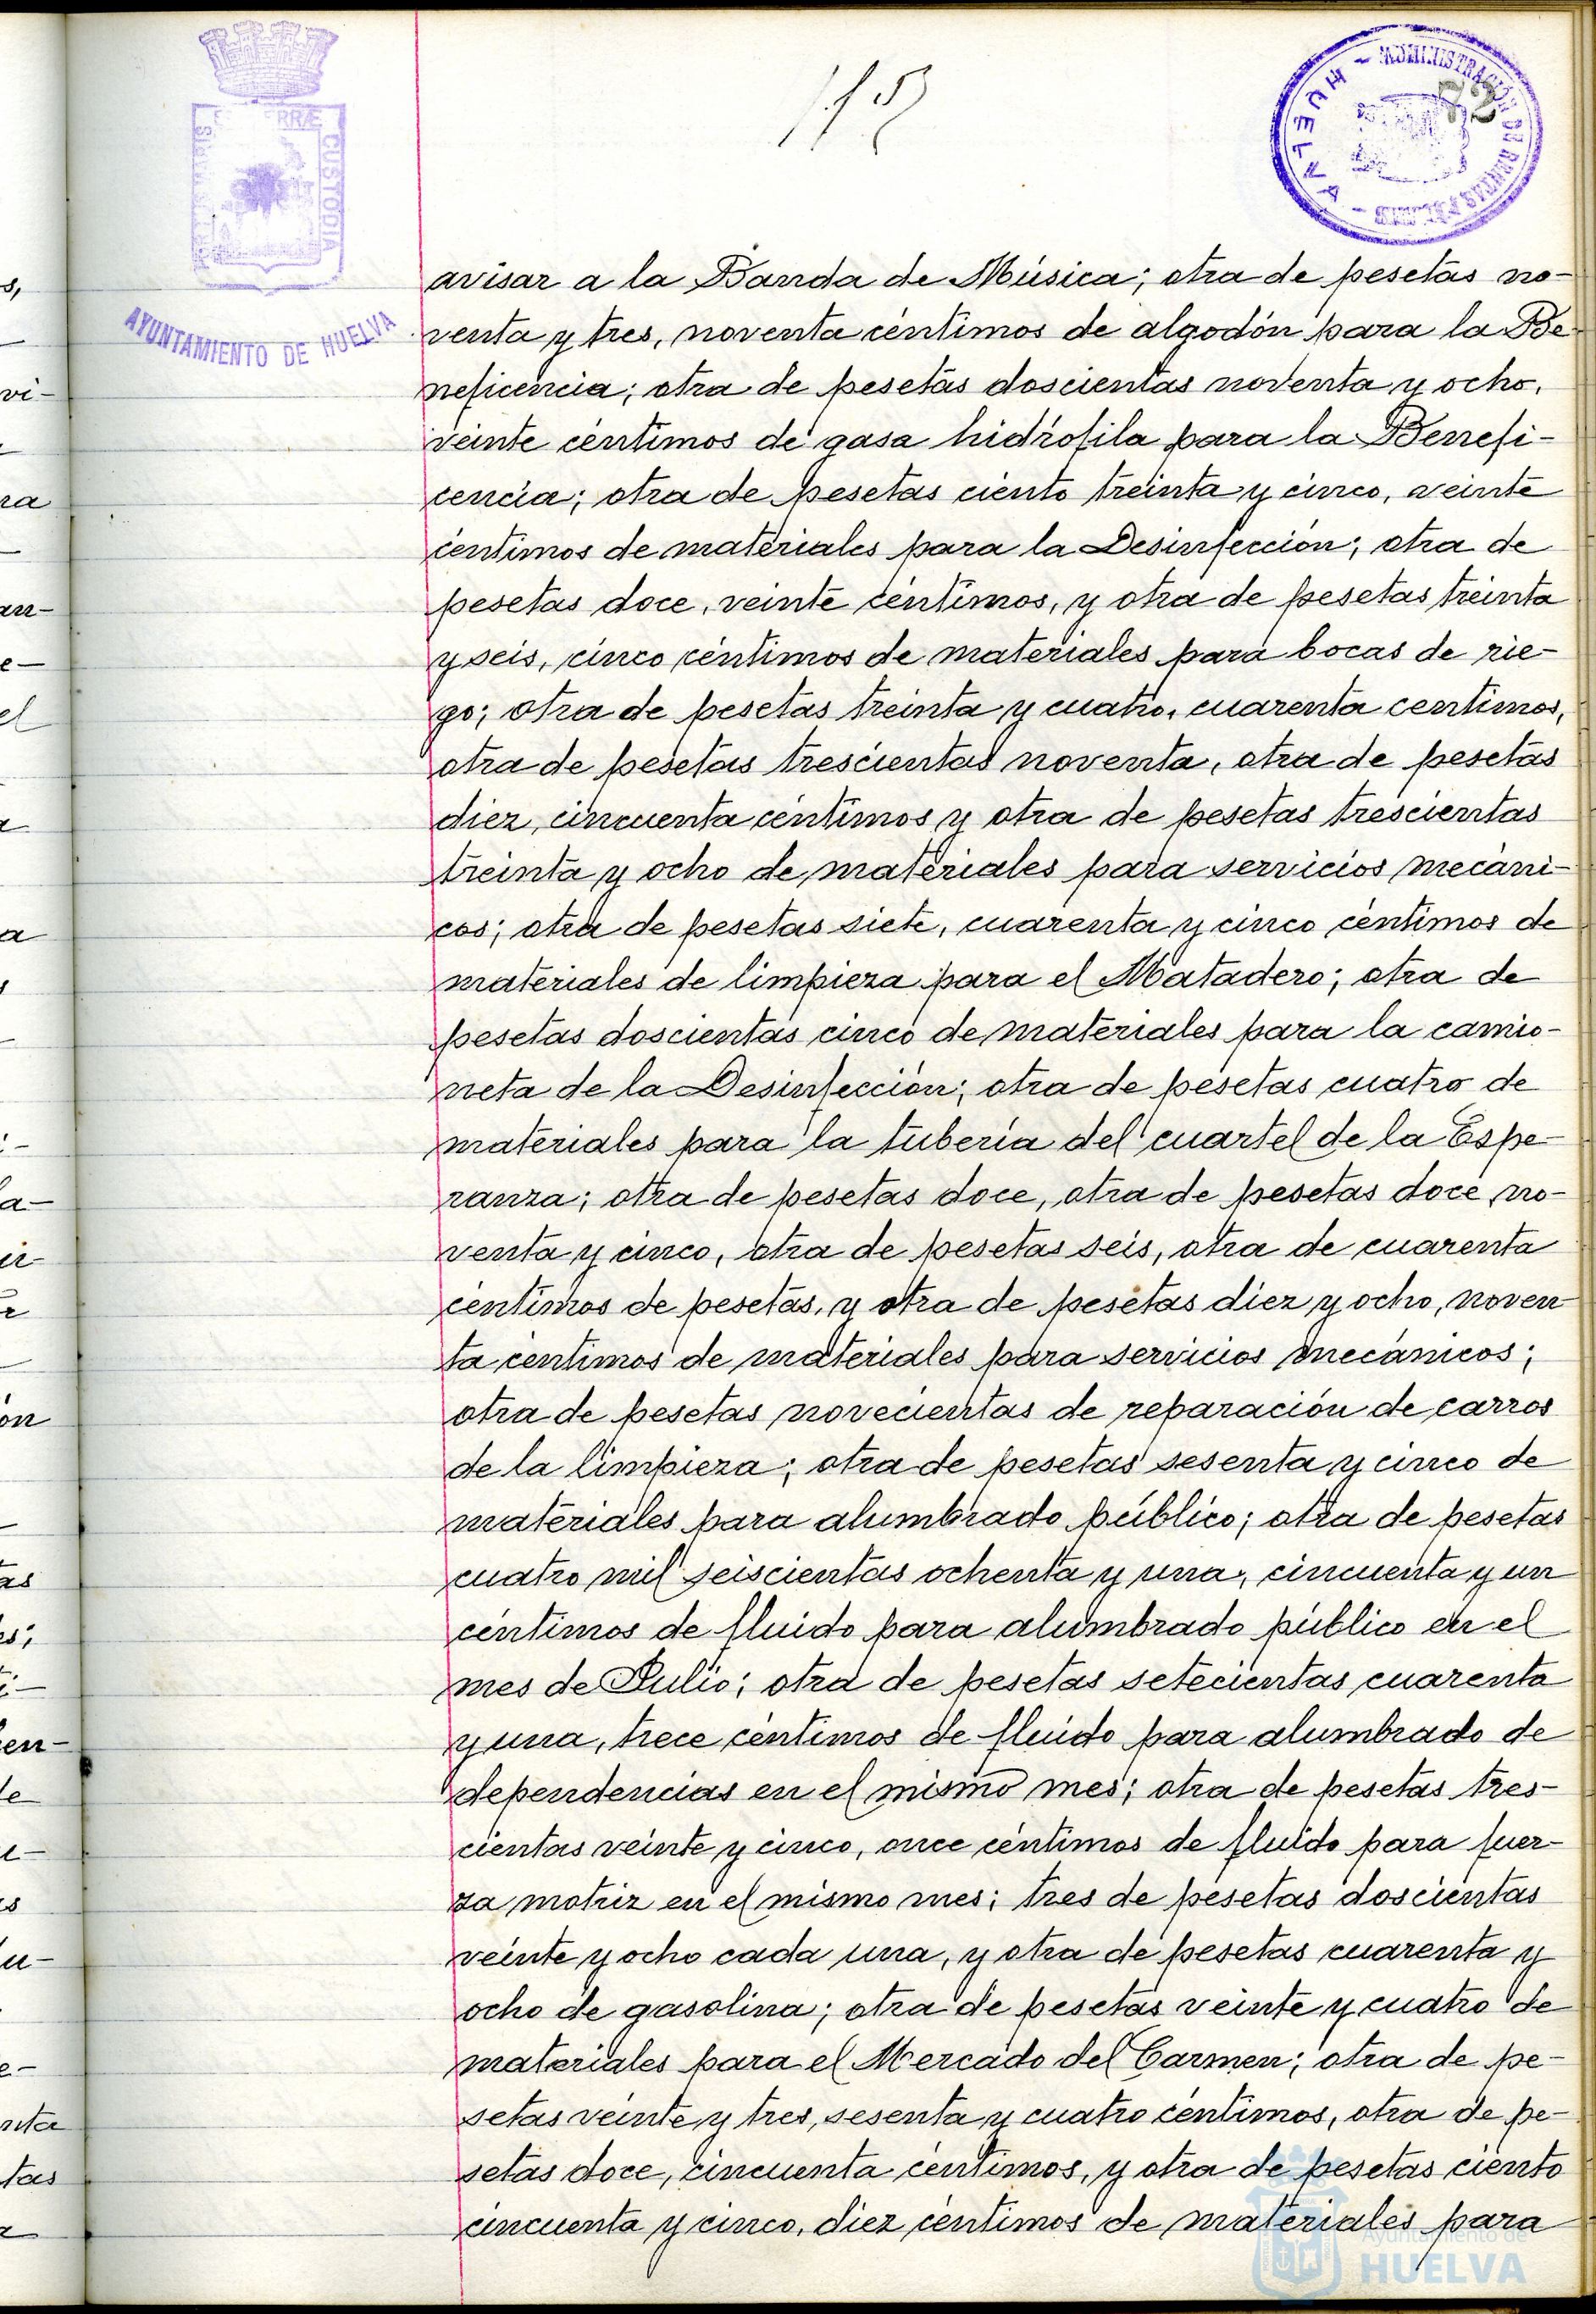 ADMINISTRACIÓN DE RENTAS
HUELVA
73
CUSTODIA
AYUNTAMIENTO DE HUELVA
avisar a la Banda de Música; otra de pesetas no-
venta y tres, noventa céntimos de algodón para la Be
neficencia; otra de pesetas doscientas noventa y ocho,
veinte céntimos de gasa hidrófila para la Benefi-
cencia; otra de pesetas ciento treinta y cinco, veinte
céntimos de materiales para la Desinfección; otra de
pesetas doce, veinte céntimos, y otra de pesetas treinta
y seis, cinco céntimos de materiales para bocas de rie-
go; otra de pesetas treinta y cuatro, cuarenta centimos,
otra de pesetas trescientas noventa, otra de pesetas
diez, cincuenta céntimos y otra de pesetas trescientas
treinta y ocho de materiales para servicios mecáni-
cos; otra de pesetas siete, cuarenta y cinco céntimos de
materiales de limpieza para el Matadero; otra de
pesetas doscientas cinco de materiales para la camio-
neta de la Desinfección; otra de pesetas cuatro de
materiales para la tubería del cuartel de la Espe-
ranza; otra de pesetas doce, otra de pesetas doce, no-
venta y cinco, otra de pesetas seis, otra de cuarenta
céntimos de pesetas, y otra de pesetas diez y ocho, noven
ta céntimos de materiales para servicios mecánicos;
otra de pesetas novecientas de reparación de carros
de la limpieza; otra de pesetas sesenta y cinco de
materiales para alumbrado público; otra de pesetas
cuatro mil seiscientas ochenta y una, cincuenta y un
céntimos de fluido para alumbrado público en el
mes de Julio; otra de pesetas setecientas cuarenta
y una, trece céntimos de fluido para alumbrado de
dependencias en el mismo mes; otra de pesetas tres-
cientas veinte y cinco, once céntimos de fluido para fuer-
za motriz en el mismo mes; tres de pesetas doscientas
veinte y ocho cada una, y otra de pesetas cuarenta y
ocho de gasolina; otra de pesetas veinte y cuatro de
materiales para el Mercado del Carmen; otra de pe-
setas veinte y tres, sesenta y cuatro céntimos, otra de pe-
setas doce, cincuenta céntimos, y otra de pesetas ciento
cincuenta y cinco, diez céntimos de materiales para
Ayuntamiento de
HUELVA